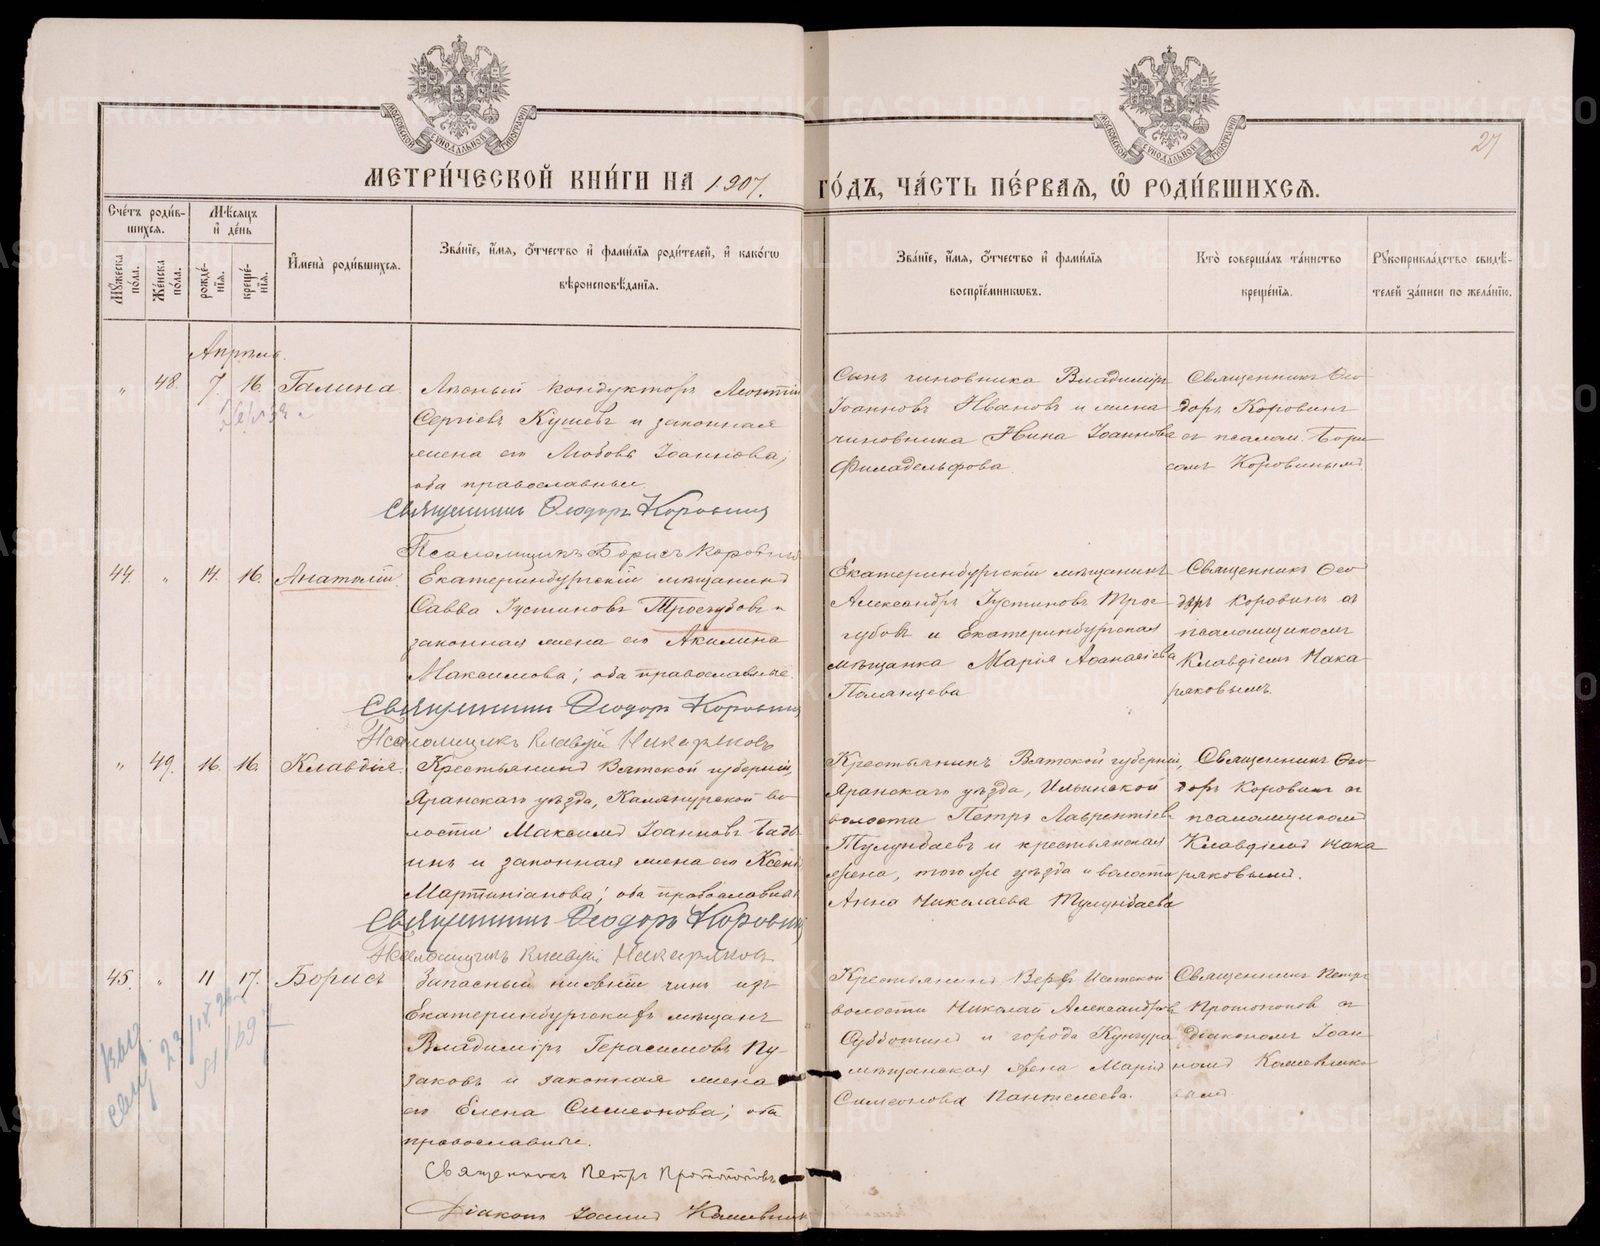 МЕТРИ́ЧЕСКОЙ КНИ́ГИ НА 1907.
ГО́ДЪ, ЧА́СТЬ ПЕ́РВАЯ, Ѽ РОДИ́ВШИХСЯ.
27
Сче́тъ роди́в-
шихся.
Мѣ́сяцъ
и҆ де́нь
Мꙋ́жеска по́ла.
Же́нска по́ла.
рожде́-
нїя.
креще́-
нїя.
И҆мена̀ роди́вшихся.
Зва́нїе, и҆́мя, ѻ҆́тчество и҆ фами́лїя роди́телей, и҆ како́гѡ
вѣроисповѣ́данїя.
Зва́нїе, и҆́мя, ѻ҆́тчество и҆ фами́лїя
воспрїе́мникѡвъ.
Кто̀ соверша́лъ та́инство
креще́нїя.
Рꙋкоприкла́дство свидѣ́-
телей за́писи по жела́нїю.
Апрѣль.
" 48. 7. 16. Галина.
Лѣсный кондукторъ Леонтій
Сергіевъ Кушевъ и законная
жена его Любовь Іоаннова;
оба православные.
Священникъ Ѳеодоръ Коровинъ
Псаломщикъ Борисъ Коровинъ
Сынъ чиновника Владиміръ
Іоанновъ Ивановъ и жена
чиновника Нина Іоаннова
Филадельфова.
Священникъ Ѳео-
доръ Коровинъ
съ псалом. Бори-
сомъ Коровинымъ
44. " 14. 16. Анатолій.
Екатеринбургскій мѣщанинъ
Савва Іустиновъ Трегубовъ и
законная жена его Акилина
Максимова; оба православные.
Священникъ Ѳеодоръ Коровинъ
Псаломщикъ Клавдій Накаряковъ
Екатеринбургскій мѣщанинъ
Александръ Іустиновъ Тре-
губовъ и Екатеринбургская
мѣщанка Марія Аѳанасіева
Священникъ Ѳео-
доръ Коровинъ съ
псаломщикомъ
Клавдіемъ Нака-
ряковымъ.
" 49. 16. 16. Клавдія.
Крестьянинъ Вятской губерніи,
Яранскаго уѣзда, во-
лости Максимъ Іоанновъ
и законная жена его
Мартиніанова; оба православные
Священникъ Ѳеодоръ Коровинъ
Псаломщикъ Клавдій Накаряковъ
Крестьянинъ Вятской губерніи,
Яранскаго уѣзда, Ильинской
волости Петръ Лаврентіевъ
Тулунбаевъ и крестьянская
жена, того же уѣзда и волости
Анна Николаева Тулунбаева
Священникъ Ѳео-
доръ Коровинъ съ
псаломщикомъ
Клавдіемъ Нака-
ряковымъ.
45. " 11 17. Борисъ
Запасный нижній чинъ изъ
Екатеринбургскихъ мѣщанъ
Владиміръ Герасимовъ Пу-
заковъ и законная жена
его Елена Симеонова; оба
православные.
Священникъ Петръ Протопоповъ
Діаконъ Іоаннъ
Крестьянинъ Верхъ-Исетской
волости Николай Александровъ
Субботинъ и города Кунгура
мѣщанская жена Марія
Симеонова Пантелеева.
Священникъ Петръ
Протопоповъ съ
діакономъ Іоан-
номъ
METRIKI.GASO-URAL.RU